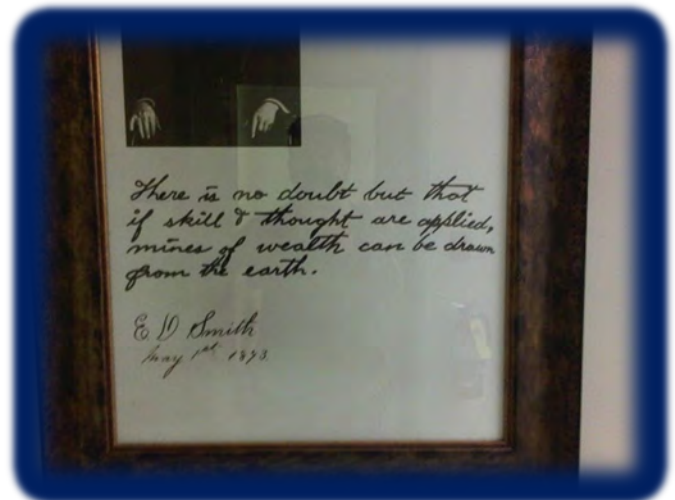 There is no doubt but that
if skill & thought are applied,
mines of wealth can be drawn
from the earth.
E D Smith
May 1st 1873